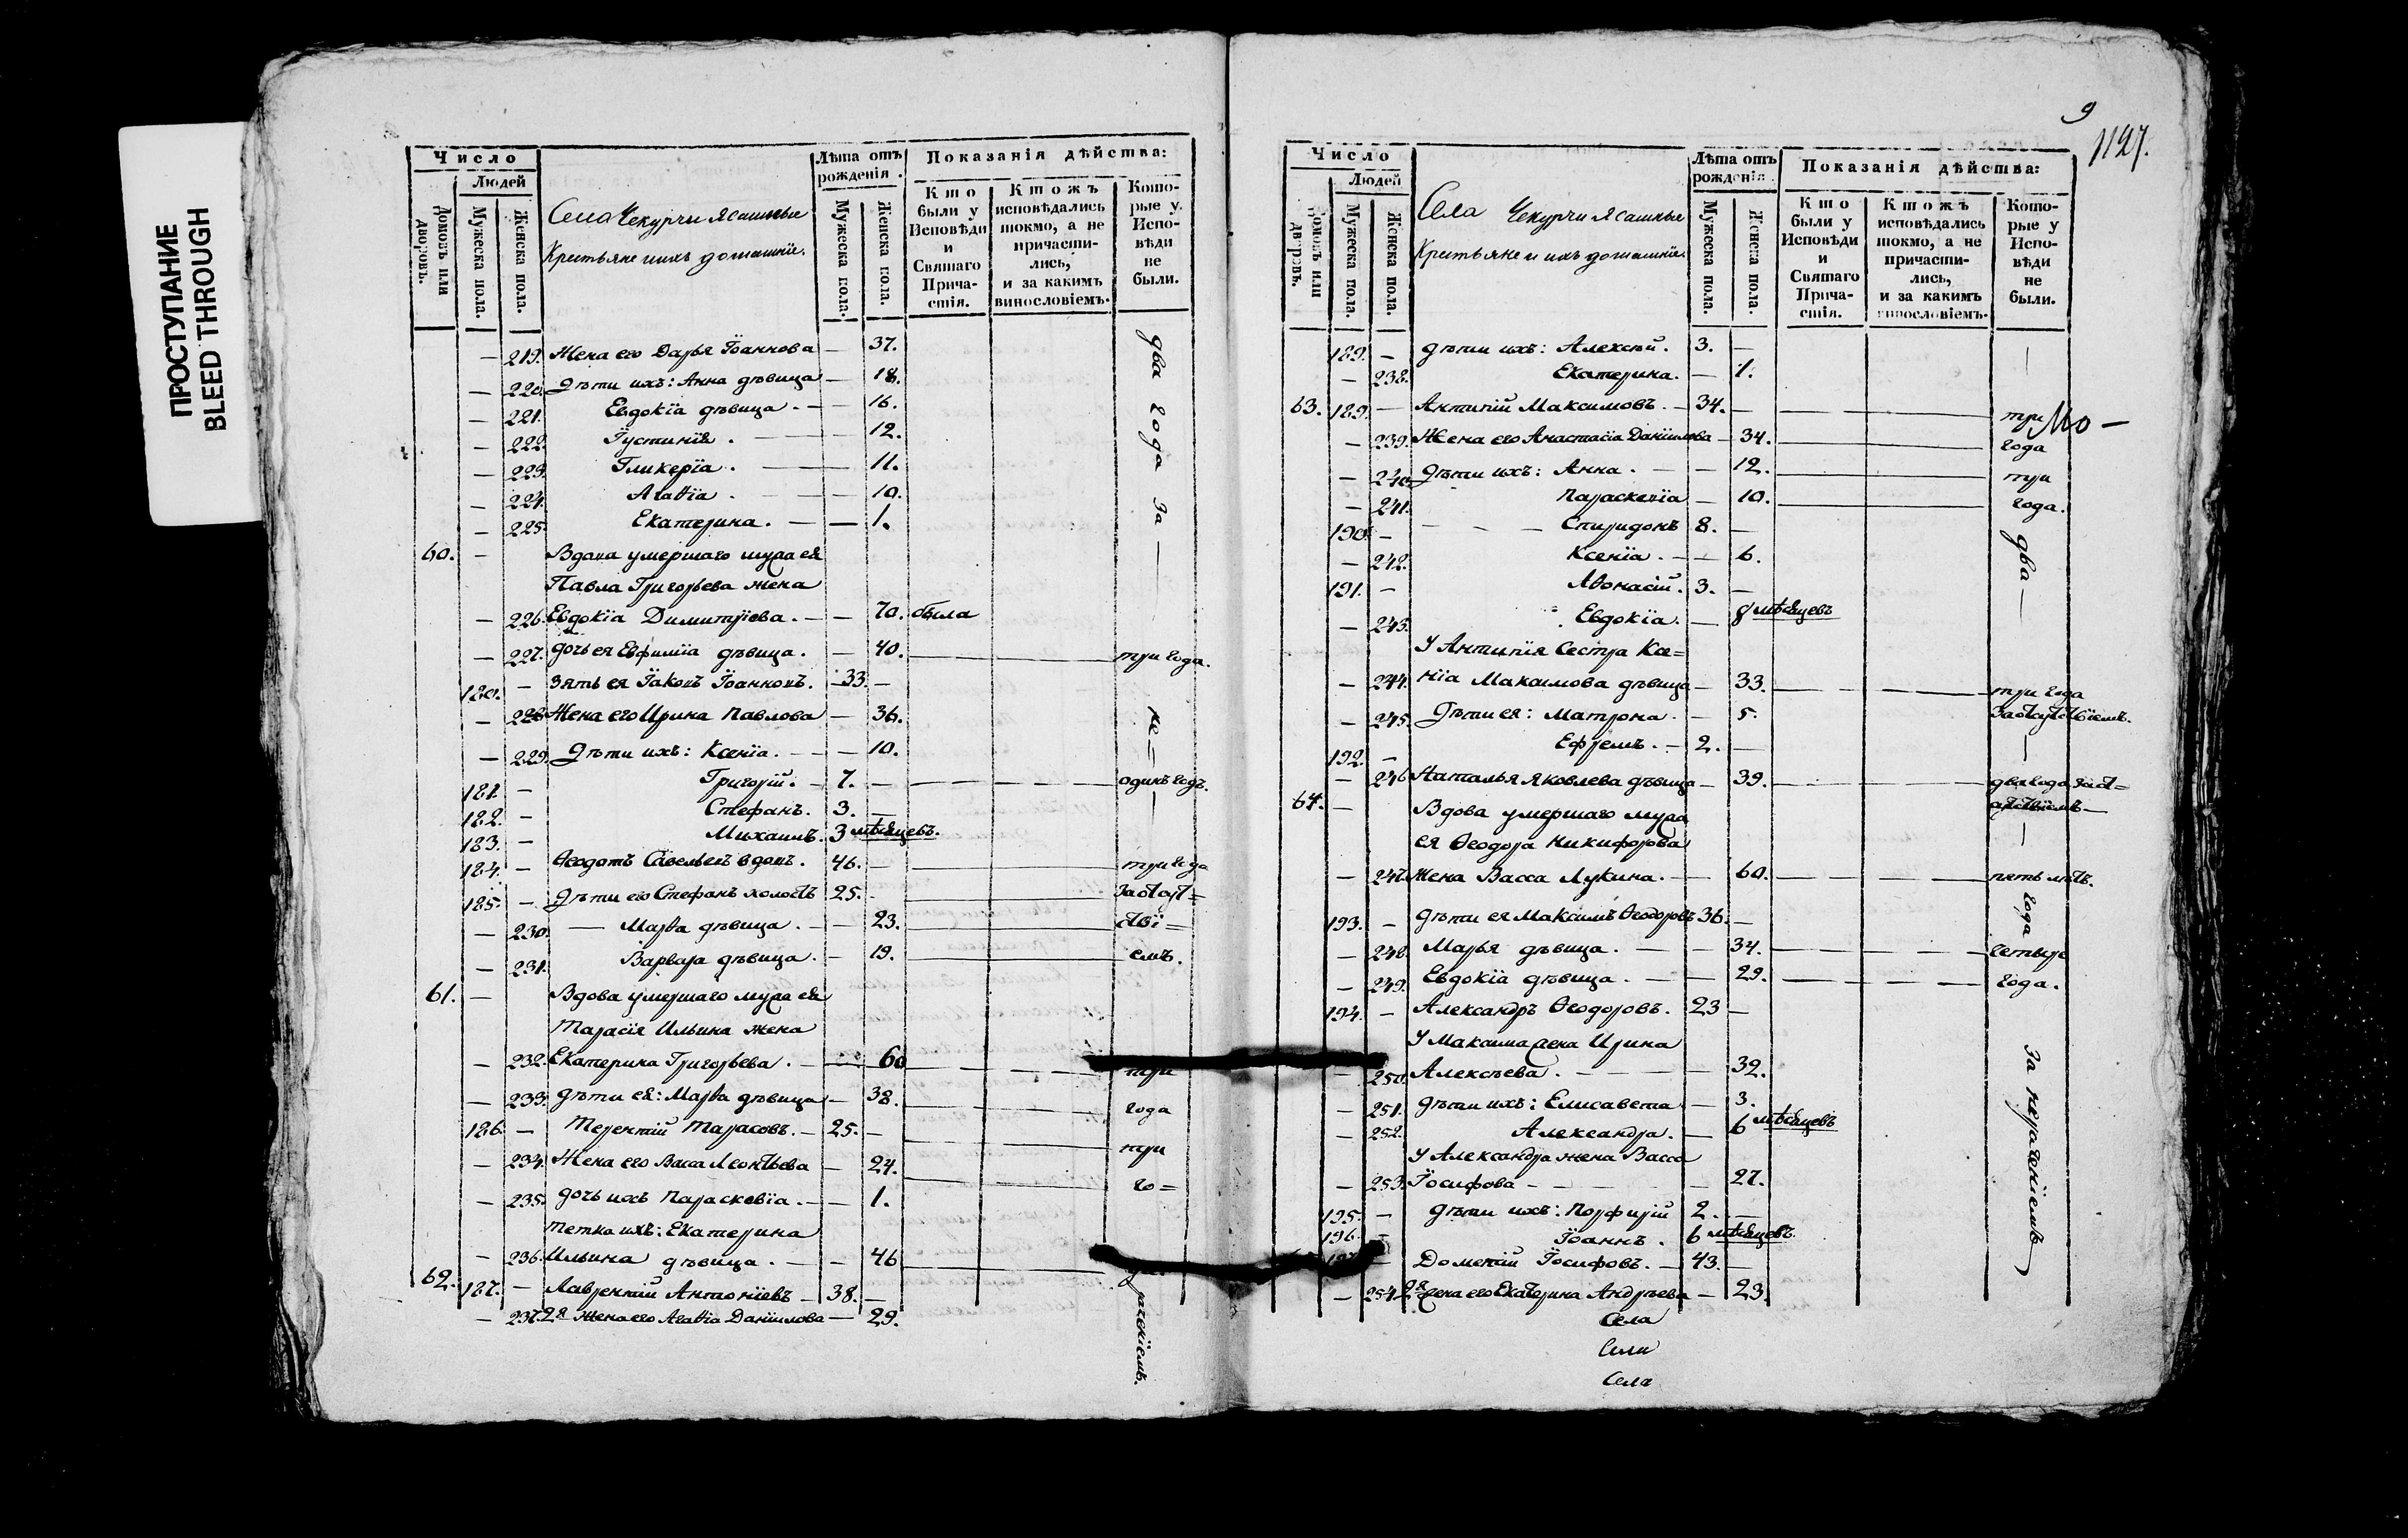 ПРОСТУПАНИЕ
BLEED THROUGH
Число
Людей
Домовъ или дворовъ.
Мужеска пола.
Женска пола.
Села Чекурчи Ясашные
Крестьяне и ихъ домашнiе.
Лѣта отъ рожденiя.
Мужеска пола.
Женска пола.
Показанiя дѣйства:
Кто были у Исповѣди и Святаго Причастiя.
Ктожъ исповѣдались токмо, а не причастились, и за какимъ винословiемъ.
Которые у Исповѣди не были.
— 219. Жена его Дарья Iоаннова — 37.
— 220. Дѣти ихъ: Анна дѣвица — 18.
— 221. Евдокiа дѣвица. — 16.
— 222. Iустинiя. — 12.
— 223. Гликерiа. — 11.
— 224. Агаѳiа. — 10.
— 225. Екатерина. — 1.
два года За —
60. — Вдова умершаго мужа ея
Павла Григорьева жена
— 226. Евдокiа Димитрiева. — 70. была
— 227. дочь ея Евфимiа дѣвица. — 40. три года.
180. — Зять ея Iаковъ Iоанновъ. — 33. —
— 228. Жена его Ирина Павлова — 36.
— 229. Дѣти ихъ: Ксенiа. — 10.
не=
181. — Григорiй. — 7. — одинъ годъ.
182. — Стефанъ. 3. —
183. — Михаилъ. 3 мѣсяцевъ.
184. — Ѳеодотъ Савельевъ вдовъ. 46. — три года
185. — Дѣти его Стефанъ холостъ 25. — За отсут=
— 230. — Марѳа дѣвица. — 23. ствi=
— 231. Варвара дѣвица. — 19. емъ.
61. — Вдова умершаго мужа ея
Тарасiя Ильина жена
— 232. Екатерина Григорьева. — 60 три
— 233. Дѣти ея: Марѳа дѣвица — 38. года
186. — Терентiй Тарасовъ. — 25. — три
— 234. Жена его Васса Леонтьева — 24. го=
— 235. дочь ихъ Параскевiа. — 1.
тетка ихъ: Екатерина
— 236. Ильина дѣвица. — 46
62. 187. — Лаврентiй Антонiевъ — 38. —
— 237. 2я Жена его Агаѳiа Данiилова — 29.
9
1127.
Число
Людей
Домовъ или дворовъ.
Мужеска пола.
Женска пола.
Села Чекурчи Ясашные
Крестьяне и ихъ домашнiе.
Лѣта отъ рожденiя.
Мужеска пола.
Женска пола.
Показанiя дѣйства:
Кто были у Исповѣди и Святаго Причастiя.
Ктожъ исповѣдались токмо, а не причастились, и за какимъ винословiемъ.
Которые у Исповѣди не были.
189. — Дѣти ихъ: Алексѣй. 3. —
— 238. Екатерина. — 1.
63. 189. — Антипiй Максимовъ. — 34. — три
Мо —
— 239. Жена его Анастасiа Данiилова — 34. года
— 240. Дѣти ихъ: Анна. — 12. три
— 241. Параскевiа — 10. года.
190. — Спиридонъ 8. —
— 242. Ксенiа. — 6.
191. — Аѳонасiй. 3. —
— 243. Евдокiа. — 8 мѣсяцевъ
два —
У Антипiя Сестра Ксе=
— 244. нiа Максимова дѣвица — 33. три года
— 245. Дѣти ея: Матрона. — 5. За отсутствiемъ.
192. — Ефремъ. — 2. —
— 246 Наталья Яковлева дѣвица — 39. два года за от=
64. — Вдова умершаго мужа
ея Ѳеодора Никифорова
— 247. Жена Васса Лукина. — 60. пять лѣтъ.
193. — Дѣти ея Максимъ Ѳеодоровъ 36. —
года
— 248. Марья дѣвица. — 34. четыре
— 249. Евдокiа дѣвица. — 29. года.
194. — Александръ Ѳеодоровъ. 23 —
У Максима жена Ирина
— 250. Алексѣева. — 32.
— 251. Дѣти ихъ: Елисавета — 3.
— 252. Александра. — 6 мѣсяцевъ
У Александра жена Васса
— 253. Iосифова — 27.
195. — Дѣти ихъ: Порфирiй 2. —
196. — Iоаннъ. 6 мѣсяцевъ.
— Дометiй Iосифовъ. — 43. —
— 254. 2я жена его Екатерина Андреева — 23.
За нераченiемъ
Села
Сели
Села